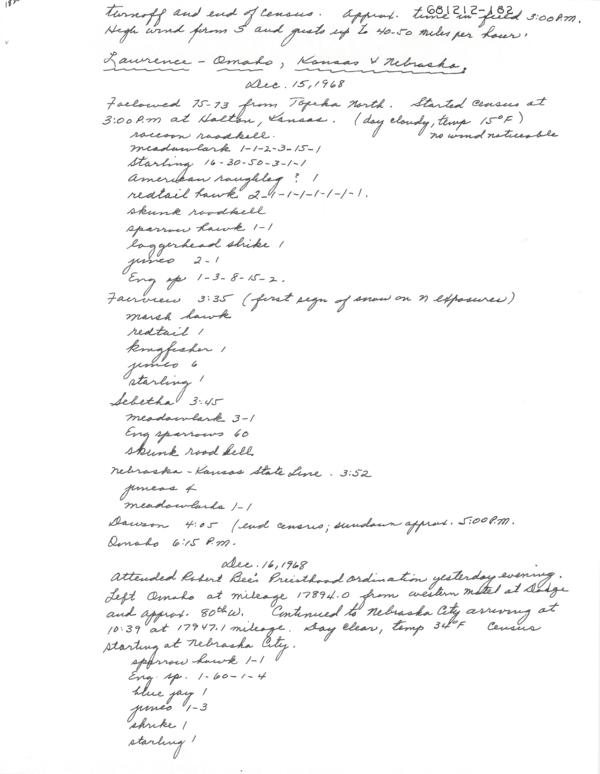 turnoff and end of census. Approx. time in field 3:00 P.M.
681212-182
High wind from S and gusts up to 40-50 miles per hour.
Lawrence - Omaha, Kansas & Nebraska,
Dec. 15, 1968
Followed 75-73 from Topeka North. Started census at
3:00 P.M at Holton, Kansas. (day cloudy, temp 15°F)
raccoon roadkill. no wind noticeable
meadowlark 1-1-2-3-15-1
Starling 16-30-50-3-1-1
American roughleg ? 1
redtail hawk 2-1-1-1-1-1-1-1.
skunk roadkill
sparrow hawk 1-1
loggerhead shrike 1
junco 2-1
Eng sp 1-3-8-15-2.
Fairview 3:35 (first sign of snow on N exposures)
marsh hawk
redtail 1
kingfisher 1
junco 6
starling 1
Sebetha 3:45
meadowlark 3-1
Eng sparrows 60
skunk road kill
Nebraska-Kansas State Line. 3:52
juncos 4
meadowlarks 1-1
Dawson 4:05 (end census; sundown approx. 5:00 P.M.
Omaha 6:15 P.M.
Dec. 16, 1968
Attended Robert Bee's Priesthood Ordination yesterday evening.
Left Omaha at mileage 17894.0 from western motel at Dodge
and approx. 80th W. Continued to Nebraska City arriving at
10:39 at 17947.1 mileage. Day clear, temp 34°F Census
starting at Nebraska City.
sparrow hawk 1-1
Eng. sp. 1-60-1-4
blue jay 1
junco 1-3
shrike 1
starling 1